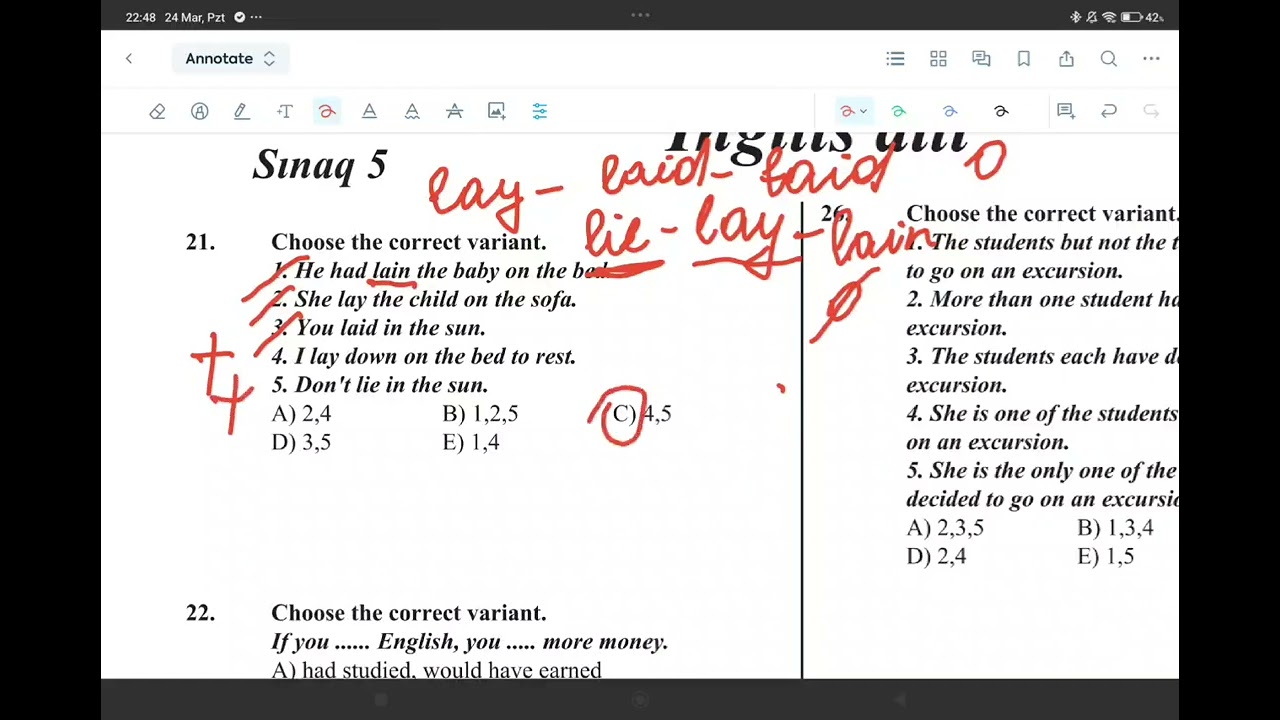 22:48 24 Mar, Pzt
42%
Annotate
Sınaq 5
İngilis dili
lay - laid - laid O
lie - lay - lain
21. Choose the correct variant.
1. He had lain the baby on the bed.
2. She lay the child on the sofa.
3. You laid in the sun.
4. I lay down on the bed to rest.
5. Don't lie in the sun.
A) 2,4 B) 1,2,5 C) 4,5
D) 3,5 E) 1,4
22. Choose the correct variant.
If you ...... English, you ..... more money.
A) had studied, would have earned
26. Choose the correct variant.
1. The students but not the t
to go on an excursion.
2. More than one student ha
excursion.
3. The students each have d
excursion.
4. She is one of the students
on an excursion.
5. She is the only one of the
decided to go on an excursi
A) 2,3,5 B) 1,3,4
D) 2,4 E) 1,5